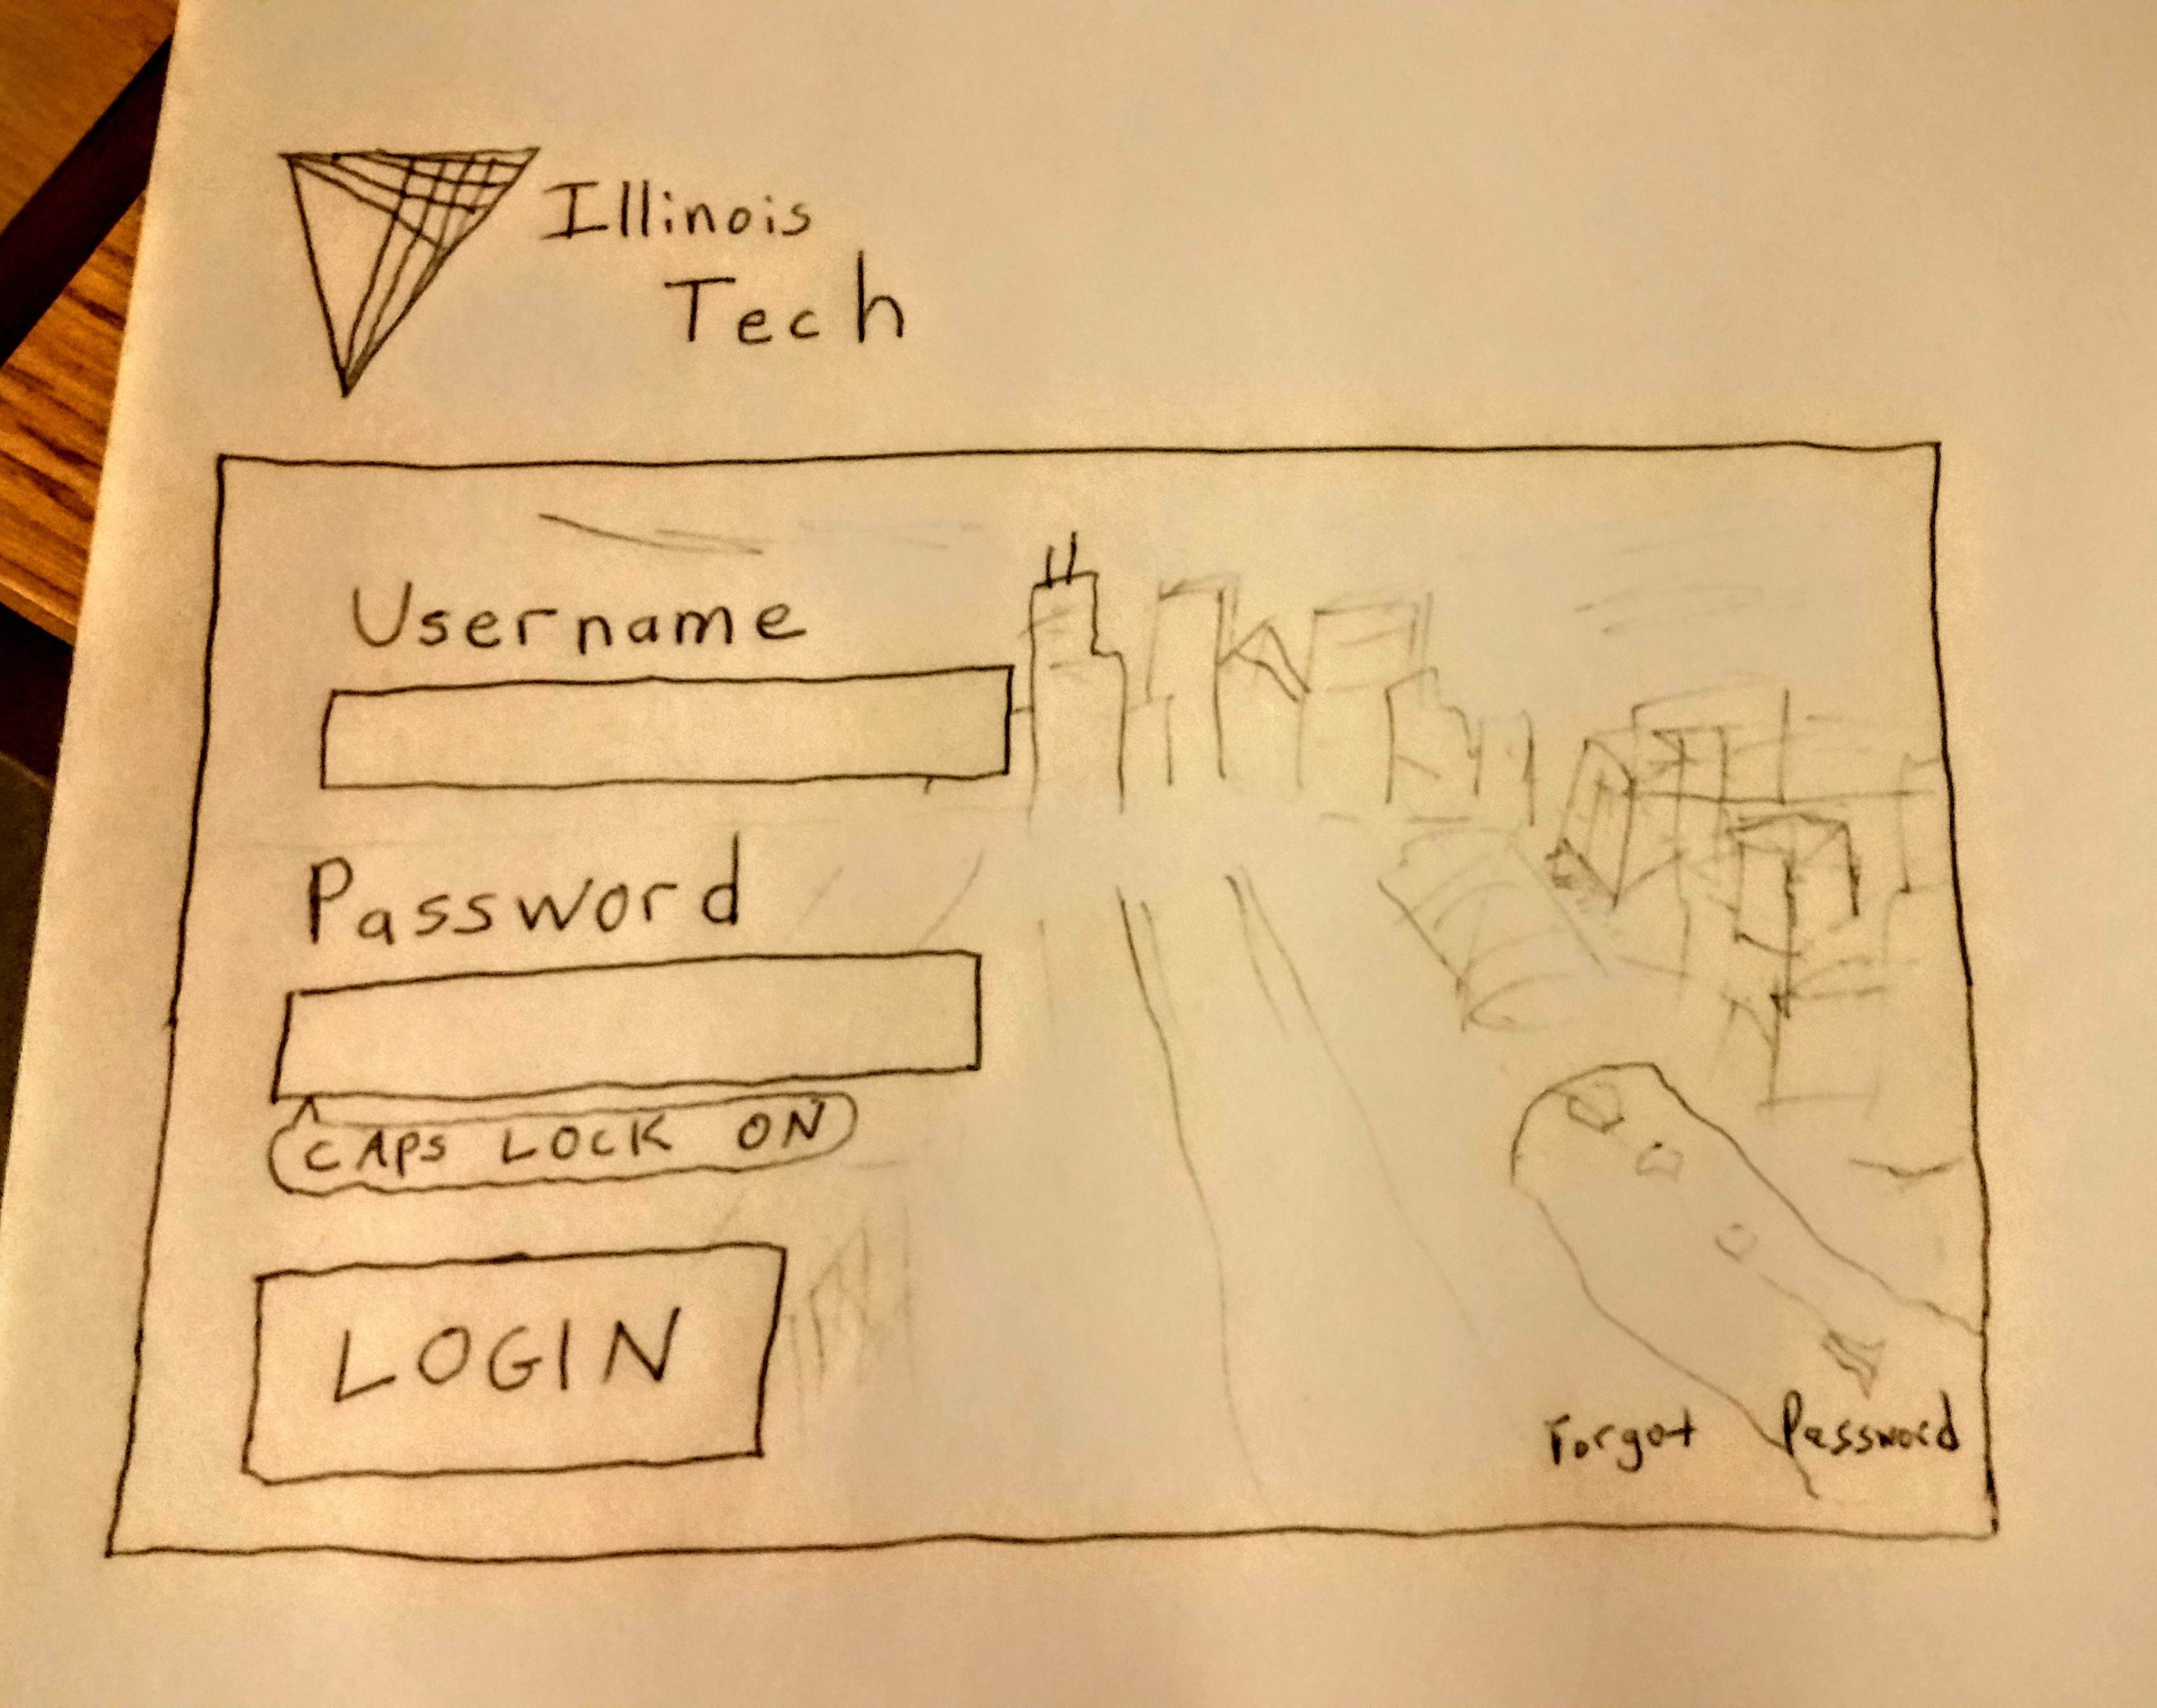 Illinois
Tech
Username
Password
CAPS LOCK ON
LOGIN
Forgot Password